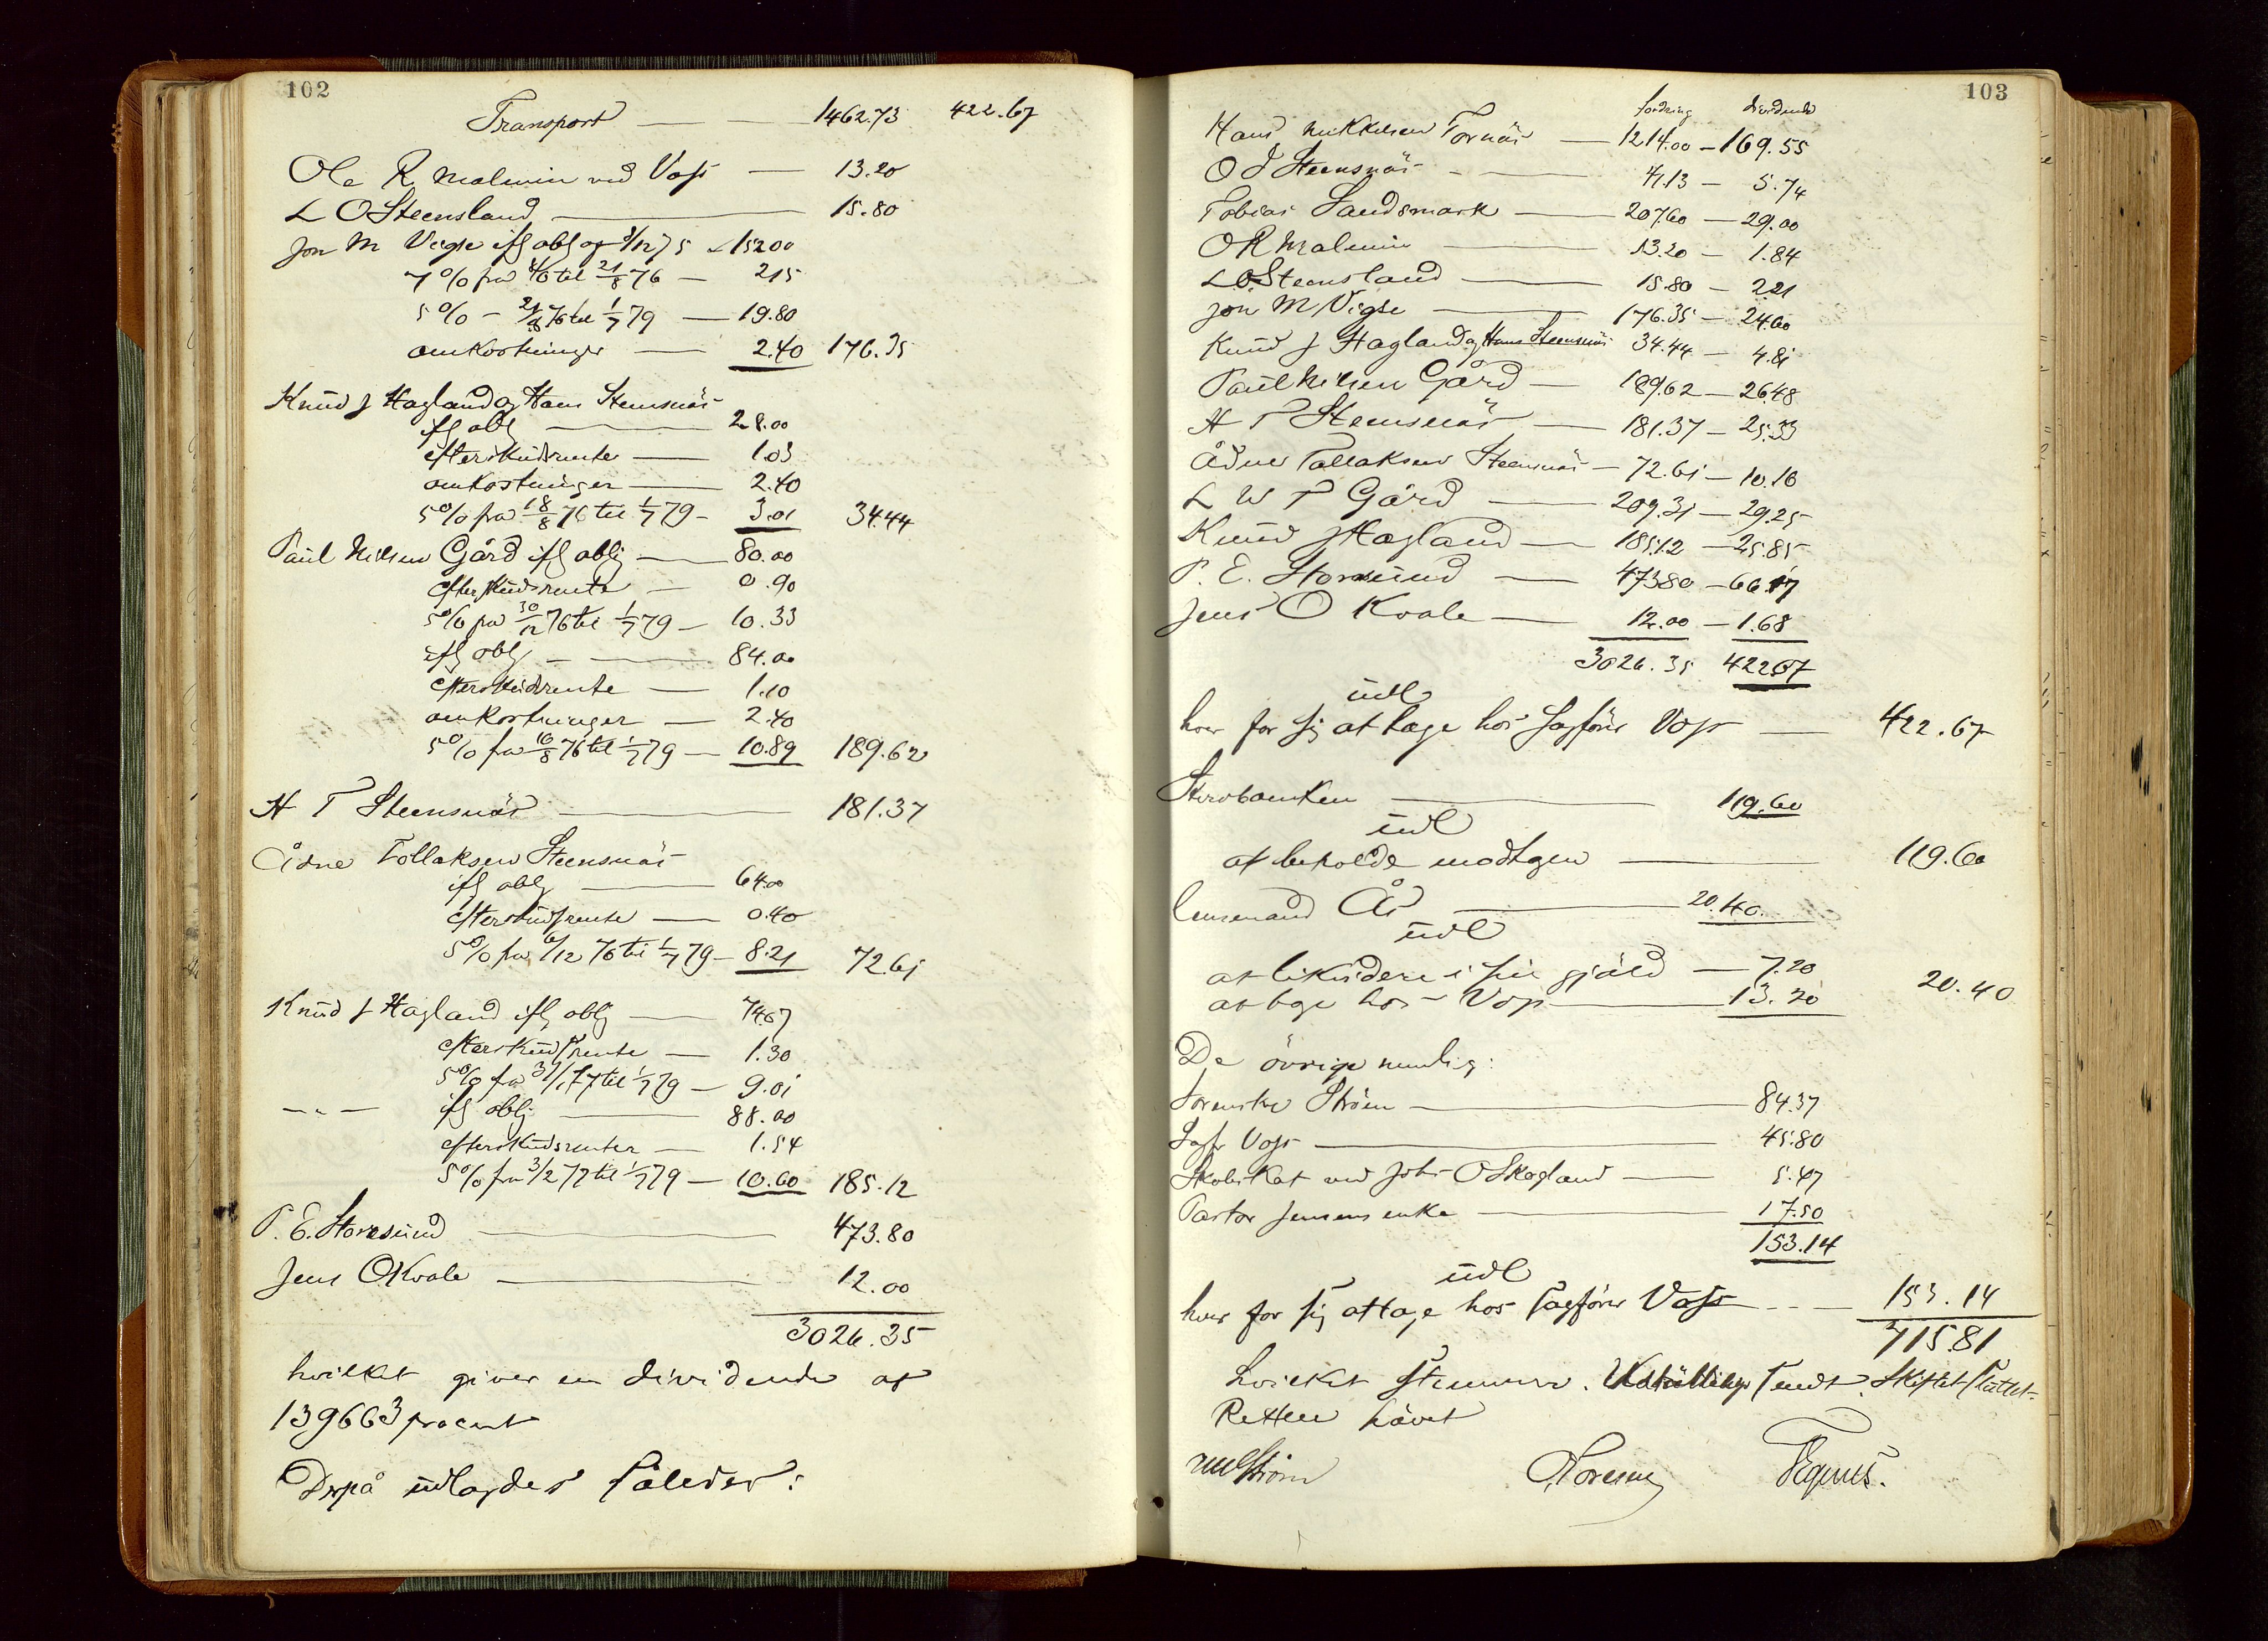 102
Transport — — 1462.73 422.67
Ole R. Malmin ved Voss — 13.20
L O Steensland — 15.80
Jon M Vigse ifl obl af 3/12 75 152.00
7% fra 4/6 til 21/8 76 — 2.15
5% — 21/8 76 til 1/7 79 — 19.80
omkostninger — 2.40 176.35
Knud J Hagland og Hans Steensnäs
ifl obl — 28.00
efterskudsrente — 1.03
omkostninger — 2.40
5% fra 18/8 76 til 1/7 79 — 3.01 34.44
Paul Nilsen Gård ifl oblg — 80.00
efterskudsrente — 0.90
5% fra 30/12 76 til 1/7 79 — 10.33
ifl oblg — 84.00
efterskudsrente — 1.10
omkostninger — 2.40
5% fra 16/8 76 til 1/7 79 — 10.89 189.62
H T Steensnäs — 181.37
Ådne Tollaksen Steensnäs
ifl oblg — 64.00
efterskudsrente — 0.40
5% fra 6/12 76 til 1/7 79 — 8.21 72.61
Knud J Hagland ifl oblg — 74.67
efterskudsrente — 1.30
5% fra 31/1 77 til 1/7 79 — 9.01
— " — ifl oblg — 88.00
efterskudsrenter — 1.54
5% fra 3/2 77 til 1/7 79 — 10.60 185.12
P. E. Storesund — 473.80
Jens O Kvale — 12.00
3026.35
hvilket giver en dividende af
139663 procent
Derpå udlagdes således:
103
fordring dividende
Hans Mikkelsen Tornäs — 1214.00 — 169.55
O J Steensnäs — 41.13 — 5.74
Tobias Sandsmark — 207.60 — 29.00
O R Malmin — 13.20 — 1.84
L O Steensland — 15.80 — 2.21
Jon M Vigse — 176.35 — 24.60
Knud J Hagland og Hans Steensnäs 34.44 — 4.81
Paul Nilsen Gård — 189.62 — 26.48
H T Steensnäs — 181.37 — 25.33
Ådne Tollaksen Steensnäs — 72.61 — 10.16
L W T Gård — 209.31 — 29.25
Knud J Hagland — 185.12 — 25.85
P. E. Storesund — 473.80 — 66.17
Jens O Kvale — 12.00 — 1.68
3026.35 422.67
udl
hver for sig at tage hos Sagfører Voss — 422.67
Skivebanken — 119.60
udl
at beholde modtgen — 119.60
lensmand Ås — 20.40
udl
at likvidere i sin gjäld — 7.20
at tage hos Voss — 13.20 20.40
De övrige nemlig:
Sorenskr Ström — 84.37
Sagfr Voss — 45.80
Skolekas ved Johs O Skogland — 5.47
Pastor Jensens enke — 17.50
153.14
udl
hver for sig at tage hos Sagfører Voss — 153.14
715.81
hvilket stemmer. sendt. Skiftet sluttet.
Retten hävet